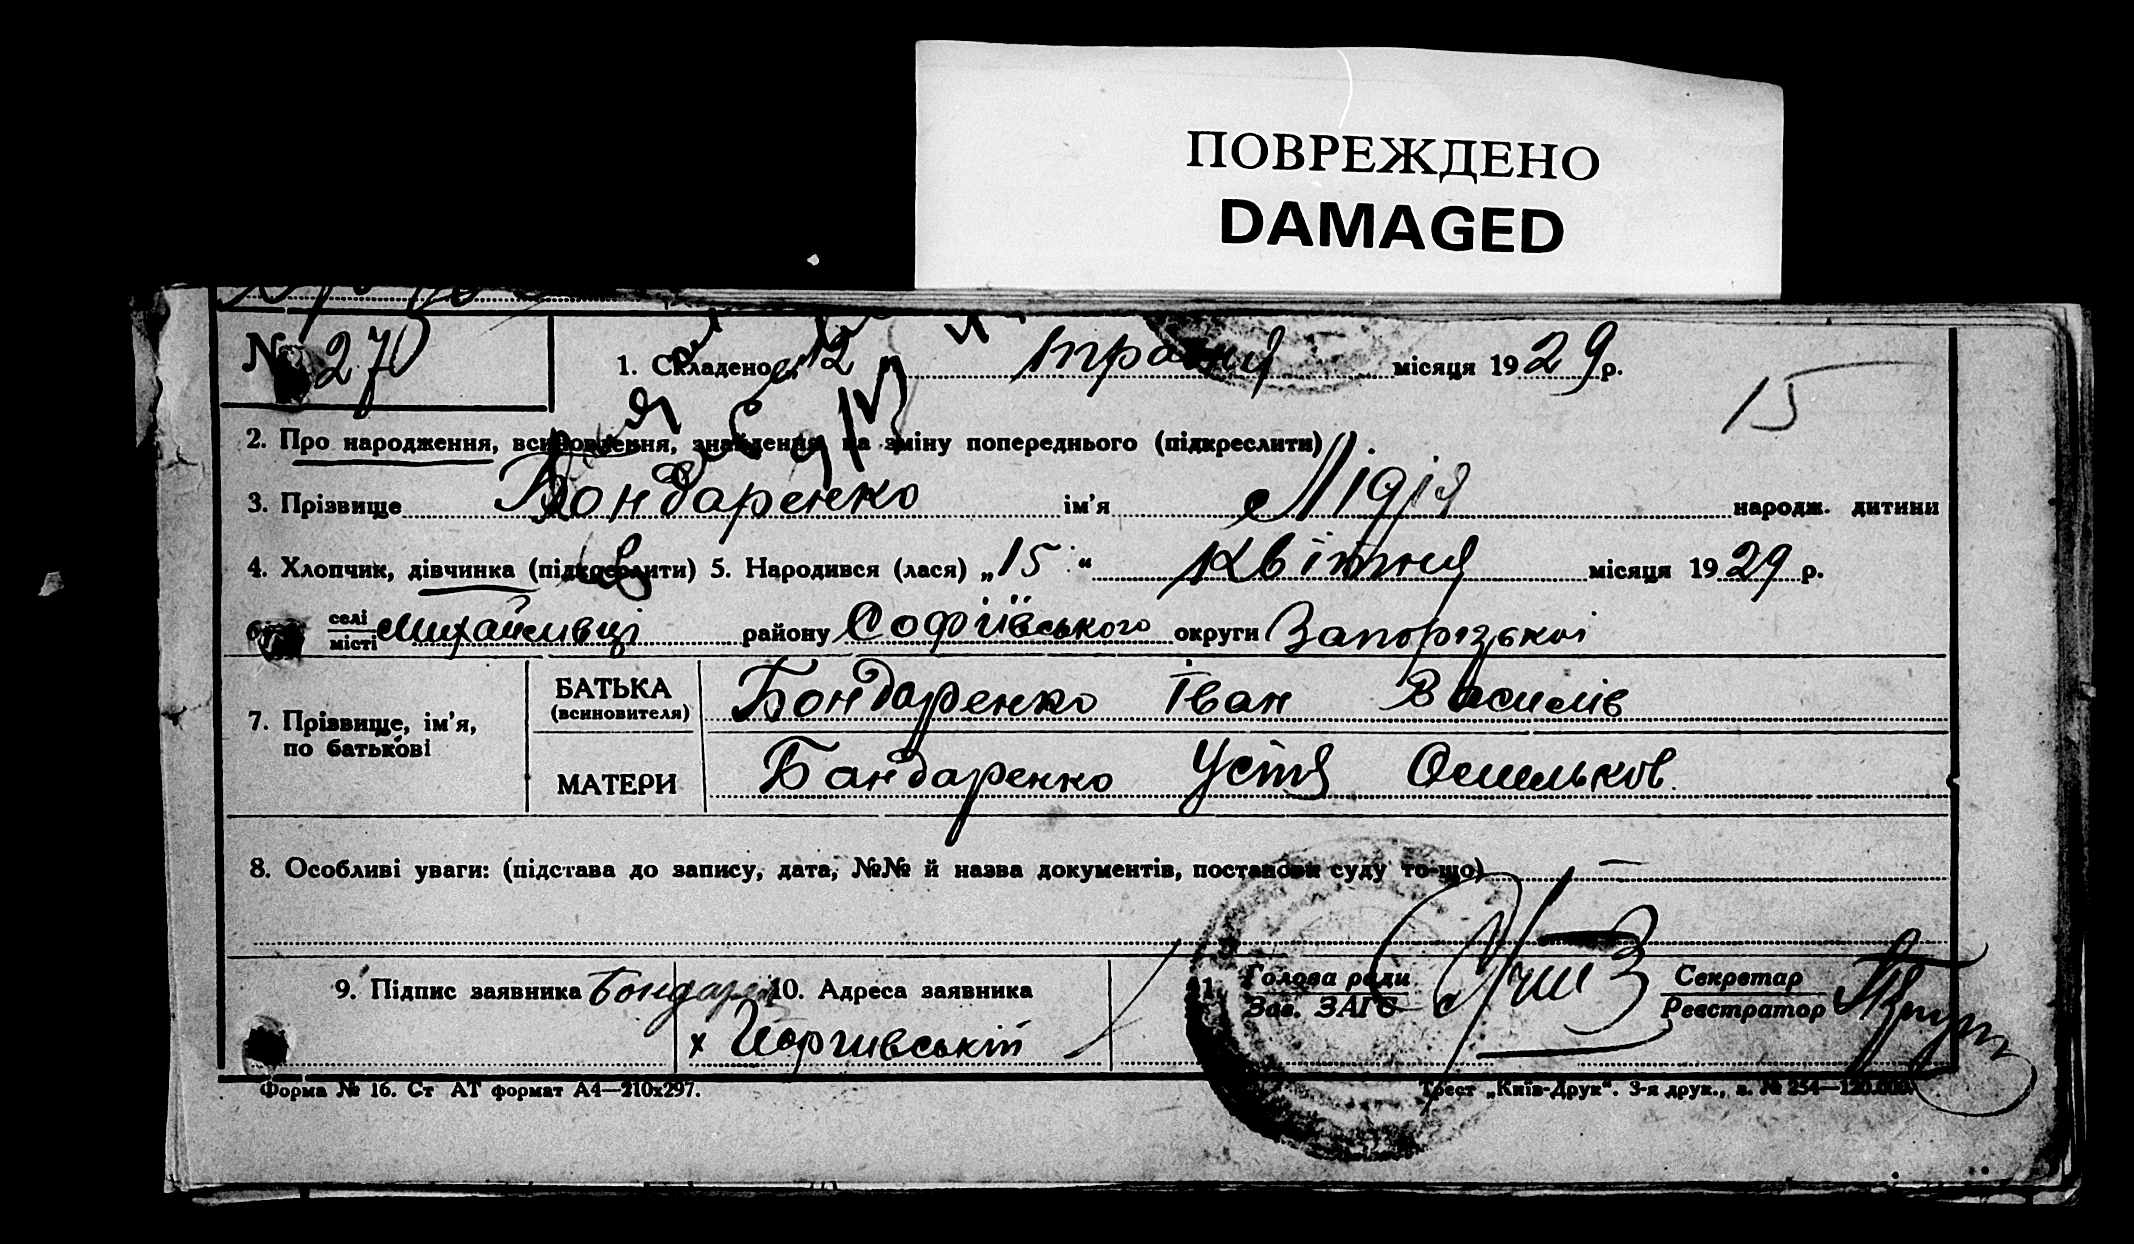 ПОВРЕЖДЕНО
DAMAGED
№ 270
1. Складено „12 травня місяця 1929 р.
15
2. Про народження, всиновлення, знайдення та зміну попереднього (підкреслити)
3. Прізвище Бондаренко ім’я Лідія народж. дитини
4. Хлопчик, дівчинка (підкреслити) 5. Народився (лася) „15“ Квітня місяця 1929 р.
6. селі місті Михайлівці району Софіївського округи Запорізької
7. Прізвище, ім’я, по батькові
БАТЬКА (всиновителя) Бондаренко Іван Василів
МАТЕРИ Бандаренко Устя Омельков.
8. Особливі уваги: (підстава до запису, дата, №№ й назва документів, постанови суду то-що)
9. Підпис заявника Бондаре 10. Адреса заявника
11. Голова ради Зав. ЗАГС Секретар Реєстратор
Форма № 16. Ст АТ формат А4—210х297.
Трест „Київ-Друк“. 3-я друк., з. № 254—120.000.